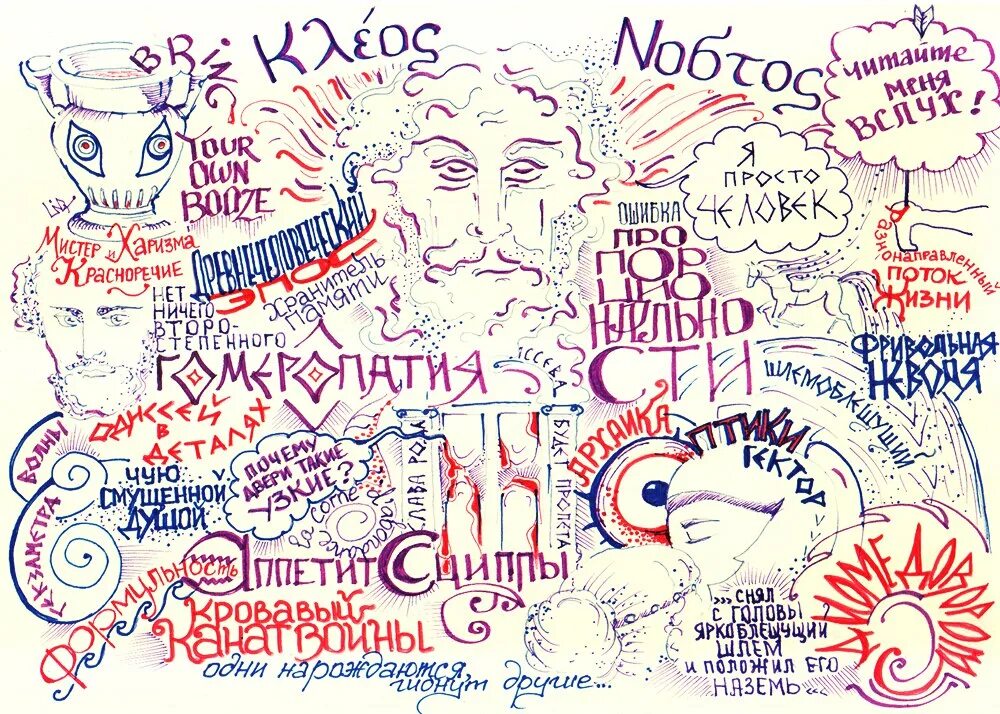 Κλέος
Νοбτος
BRING
YOUR
OWN
BOOZE
Читайте
меня
вслух!
Я
просто
человек
Мистер Харизма
и
Красноречие
Древнегреческий
эпос
Хранитель
памяти
ошибка
про
пор
цио
нально
сти
Разнонаправленный
поток
жизни
нет
ничего
второ-
степенного
Гомеропатия
Фривольная
неволя
шлемоблещущий
Гектор
Одиссей
в
деталях
волны
гекзаметра
чую
смущенной
душой
почему
двери такие
узкие?
Слава
Архаика
птики
Формульность
Аппетит Сциллы
Кровавый
Канат войны
одни нарождаются,
гибнут другие...
...снял
с головы
яркоблещущий
шлем
и положил его
наземь...